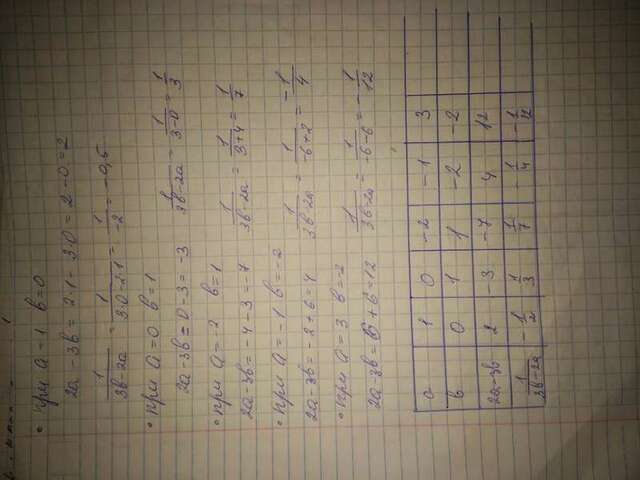 • при a = 1 b = 0
2a - 3b = 2·1 - 3·0 = 2 - 0 = 2
1/(3b-2a) = 1/(3·0-2·1) = 1/-2 = -0,5
• при a = 0 b = 1
2a - 3b = 0 - 3 = -3 1/(3b-2a) = 1/(3-0) = 1/3
• при a = -2 b = 1
2a - 3b = -4 - 3 = -7 1/(3b-2a) = 1/(3+4) = 1/7
• при a = -1 b = -2
2a - 3b = -2 + 6 = 4 1/(3b-2a) = 1/(-6+2) = -1/4
• при a = 3 b = -2
2a - 3b = 6 + 6 = 12 1/(3b-2a) = 1/(-6-6) = -1/12
a 1 0 -2 -1 3
b 0 1 1 -2 -2
2a-3b 2 -3 -7 4 12
1/(3b-2a) -1/2 1/3 1/7 -1/4 -1/12